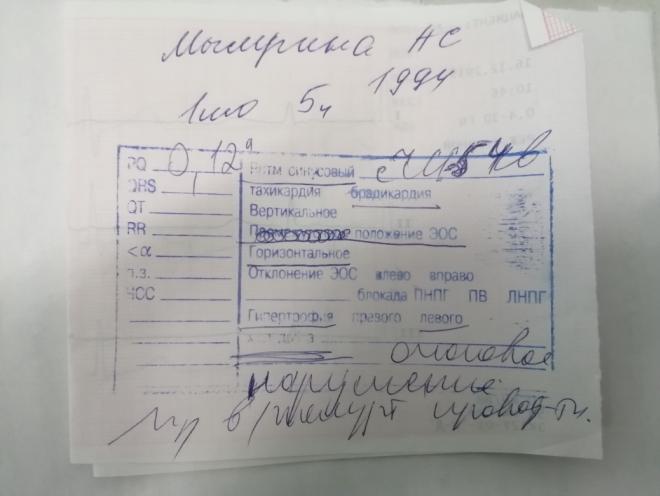 Мымрина НС
1994
1мо 5ч
PQ 0,12" Ритм синусовый с ЧСС 54 в
QRS тахикардия брадикардия
QT Вертикальное
RR положение ЭОС
<α Горизонтальное
п.з. Отклонение ЭОС влево вправо
ЧСС блокада ПНПГ ПВ ЛНПГ
Гипертрофия правого левого
очаговое
нарушение
в/желуд провод-ти.